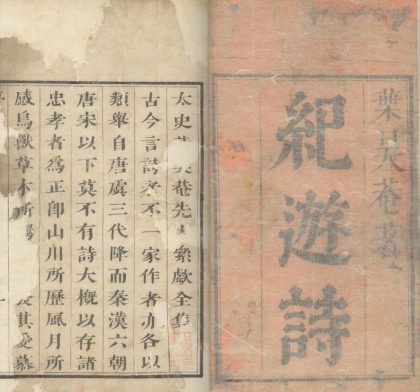 葉菴著
紀遊詩
太史菴先全集
古今言詩者不一家作者亦各以
類舉自唐虞三代降而秦漢六朝
唐宋以下莫不有詩大概以存諸
忠孝者爲正卽山川所歷風月所
感鳥獸草木所其愛慕